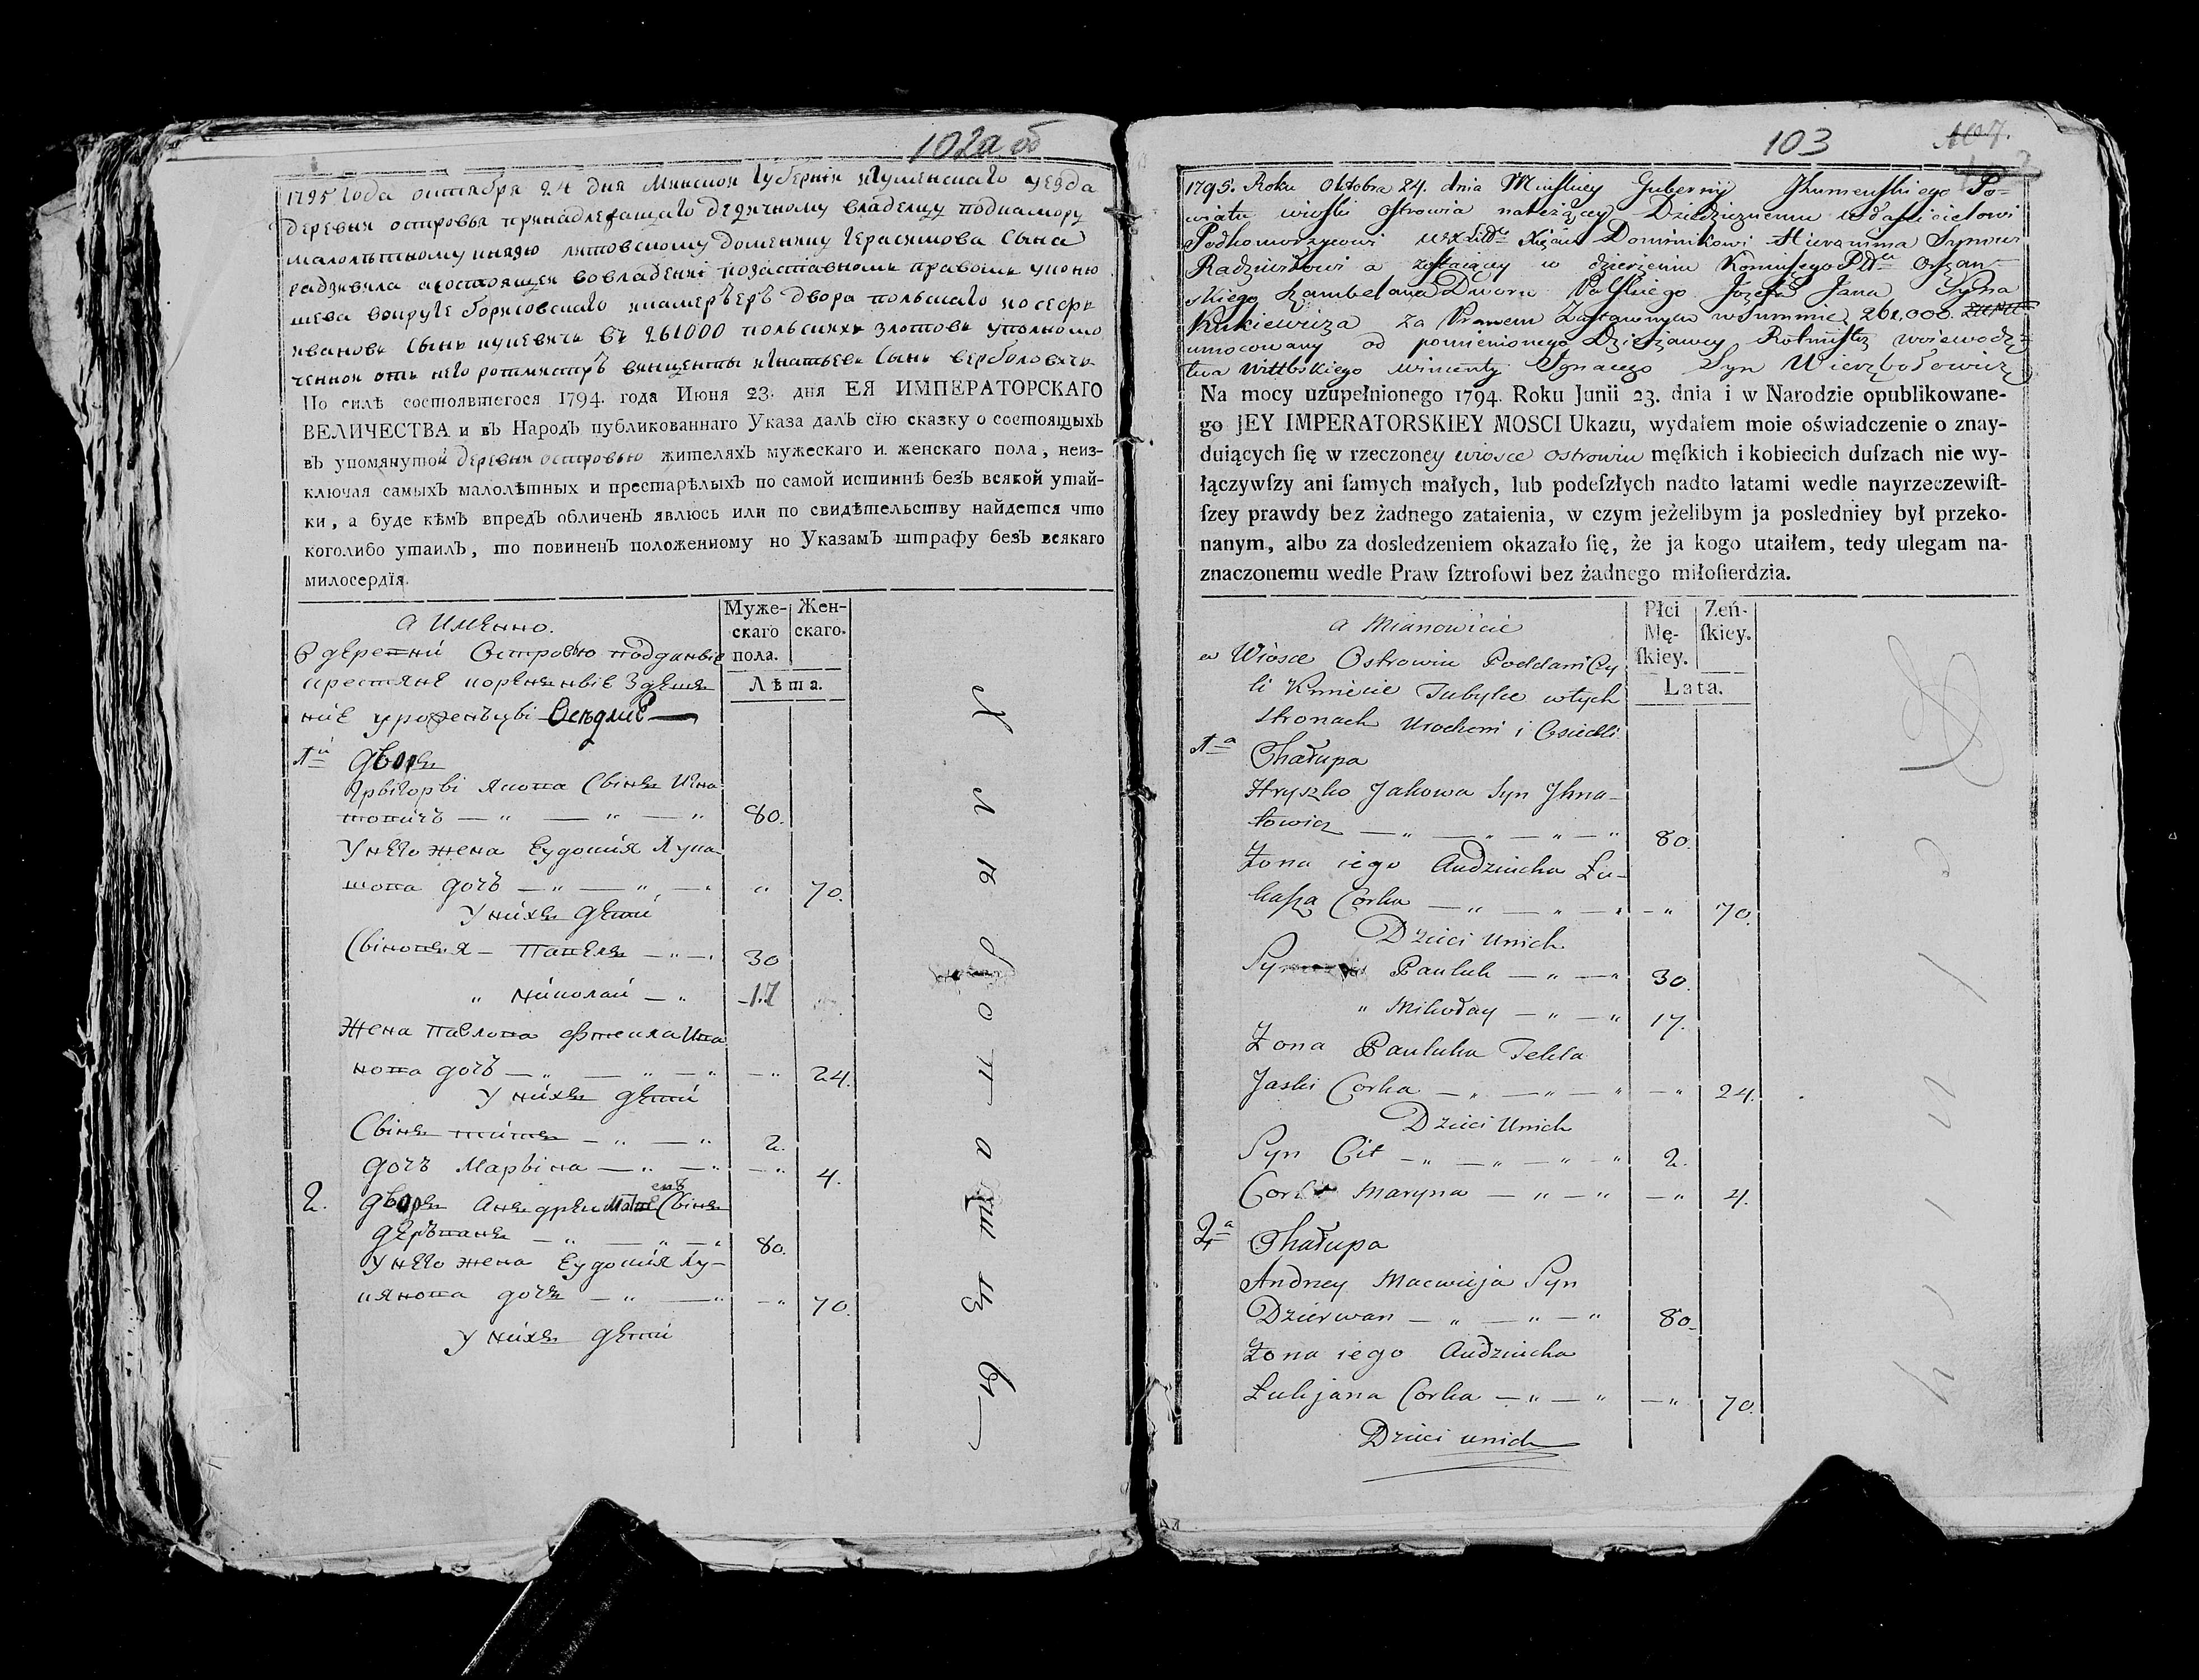 102а об
1795 года октября 24 дня Минской Губернїи Игуменскаго уезда
деревня островья принадлежащаго дедичному владелцу подкамору
малолѣтному князю литовскому доменику Герасимова Сына
радзивила а состоящей во владенїи по заставномъ правомъ у коню
шева вокруге борисовского и камерѣерЪ двора польскаго иосефа
Ивановъ Сынъ куцевичъ въ 261000 польскихъ злотовъ уполномо
ченной отъ него ротмистрЪ винценты Игнатьевъ Сынъ верболовичъ
По силѣ состоявшегося 1794. года Июня 23. дня ЕЯ ИМПЕРАТОРСКАГО
ВЕЛИЧЕСТВА и въ НародЪ публикованнаго Указа далЪ сїю сказку о состоящыхЪ
въ упомянутой деревни островью жителяхЪ мужескаго и женскаго пола, неиз-
ключая самыхЪ малолѣтных и престарѣлыхЪ по самой истиннѣ безЪ всякой утай-
ки, а буде кѣмЪ впредЪ обличенЪ явлюсь или по свидѣтельству найдется что
коголибо утаилЪ, то повиненЪ положенному по УказамЪ штрафу безЪ всякаго
милосердїя.
а имѣнно.
Муже-
скаго
пола.
Жен-
скаго.
Лѣта.
в деревни Островью подданые
крестяне коренные здешъ
ние уроженъцы Оседлые
1й дворъ
Грыгоры Якова Сынъ Игна
товичъ 80.
У него жена Еудокия Лука
шова дочъ 70.
У нихъ дети
Сыновья Павелъ 30
Николай 17
Жена Павлова Фтекла Ива
нова дочъ 24.
У нихъ дети
Сынъ титъ 2.
дочъ Марына 4.
2. дворъ Анъдрей Матвеевъ Сынъ
дерѣванъ 80.
У него жена Еудокия Лу-
кянова дочъ 70.
У нихъ дети
103
107.
1795. Roku Oktobra 24. dnia Mińskiey Gubernij Jhumenskiego Po-
wiatu wioski Ostrowia należącey Dziedzicznemu właścicielowi
Podkomorzycowi WXLitt Xięciu Dominikowi Hieronima Synowi
Radziwiłłowi a zostaiącey w dzierzeniu Koniuszego Ptu Orszan-
skiego Szambelana Dworu Polskiego Jozefa Jana Syna
Kukiewicza za Prawem Zastawnym w summie 261,000.
umocowany od pomienionego Dzierżawcy Rotmistrz wojewodz-
twa Wittbskiego wincenty Jgnacego Syn Wierzbołowicz
Na mocy uzupełnionego 1794. Roku Junii 23. dnia i w Narodzie opublikowane-
go JEY IMPERATORSKIEY MOSCI Ukazu, wydałem moie oświadczenie o znay-
duiących ſię w rzeczoney wiosce ostrowiu męſkich i kobiecich duſzach nie wy-
łączywſzy ani ſamych małych, lub podeſzłych nadto latami wedle nayrzeczewiſt-
ſzey prawdy bez żadnego zataienia, w czym jeżelibym ja posledniey był przeko-
nanym, albo za dosledzeniem okazało ſię, że ja kogo utaiłem, tedy ulegam na-
znaczonemu wedle Praw ſztroſowi bez żadnego miłoſierdzia.
a Mianowicie
Płci
Mę-
ſkiey.
Zeń-
ſkiey.
Lata.
w Wiosce Ostrowiu Poddani Czy
li Kmiecie Tubylce w tych
Stronach Urodzeni i Osiedli
1a Chałupa
Hryszko Jakowa Syn Jhna-
towicz 80.
Żona iego Audziucha Łu-
kasza Corka 70.
Dzieci u nich
Syn Pauluk 30.
Mikołay 17.
Żona Pauluka Tekla
Jaski Corka 24.
Dzieci u nich
Syn Cit 2.
Corka Maryna 4.
2a Chałupa
Andrzey Macwieja Syn
Dzierwan 80.
Żona iego Audziucha
Łukjana Corka 70.
Dzieci u nich